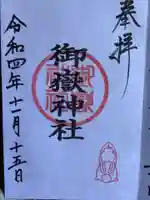 奉拝
御嶽神社
令和四年十一月十五日